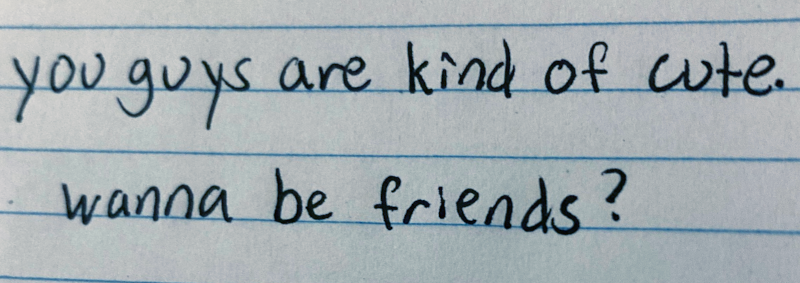 you guys are kind of cute.
wanna be friends?